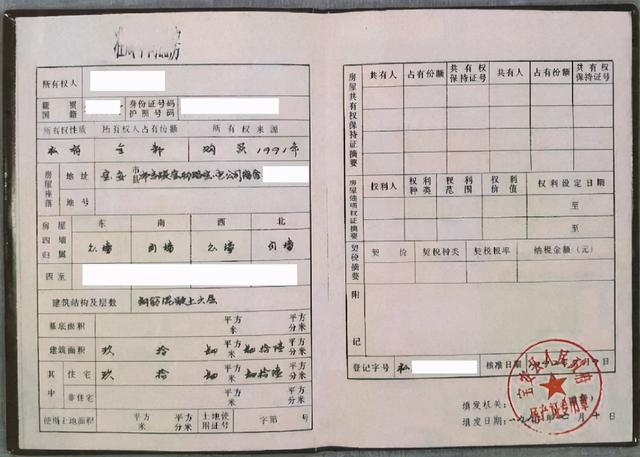 所有权人
籍贯
国籍
身份证号码
护照号码
所有权性质 所有权人占有份额 所有权来源
私有 全部 购买1991年
房屋座落
地址 宝安 市 县
地号
房屋四墙归属
东 南 西 北
自墙 自墙
四至
建筑结构及层数 钢筋混凝土六层
基底面积 平方米 平方分米
建筑面积 玖 拾 平方米 平方分米
其中 住宅 玖 拾 平方米 平方分米
非住宅 平方米 平方分米
使用土地面积 平方米 平方分米 土地使用证号 字第 号
房屋共有权保持证摘要
共有人 占有份额 共有权保持证号 共有人 占有份额 共有权保持证号
房屋他项权证摘要
权利人 权利种类 权利范围 权利价值 权利设定日期
至
至
契税摘要
契价 契税种类 契税税率 纳税金额(元)
附记
登记字号 私 核准日期
填发机关:
填发日期:
房产证专用章